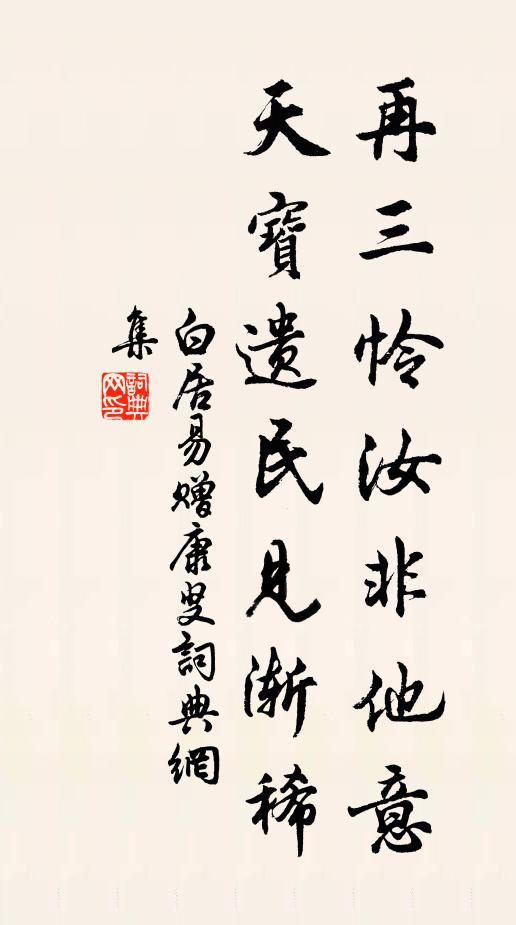 再三怜汝非他意
天寶遗民見漸稀
白居易赠康叟詞典網
集
詞典
网印